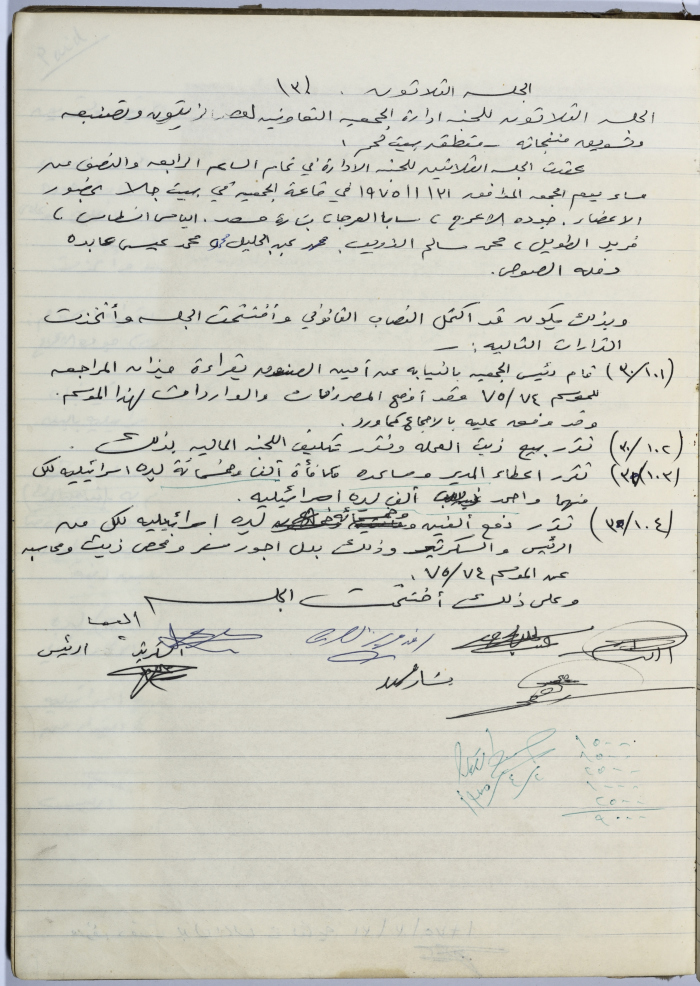 الجلسه الثلاثون . (٣٠)
الجلسه الثلاثون للجنة ادارة الجمعيه التعاونيه لعصر الزيتون وتصنيعه
وتسويق منتجاته - منطقة بيت لحم .
عقدت الجلسه الثلاثين للجنة الادارة في تمام الساعه الرابعه والنصف من
مساء يوم الجمعه الموافق ١٩٧٥/١/٣١ في قاعة الجمعيه في بيت جالا بحضور
الاعضاء . جوده الاعرج ، سابا العرجا ، بشارة مسعد . الياس انسطاس ،
فريد الطويل ، محمد سالم الذويب . محمد عبد الجليل ، محمد عيسى عابده
وفله الصوص .
وبذلك يكون قد اكتمل النصاب القانوني وأفتتحت الجلسه وأتخذت
القرارات التاليه : -
(٣٠/١٠١) قام رئيس الجمعيه بالنيابه عن أمين الصندوق بقراءة ميزان المراجعه
للموسم ٧٥/٧٤ وقد أوضح المصروفات والواردات لهذا الموسم .
وقد ووفق عليه بالاجماع كما ورد .
(٣٠/١٠٢) تقرر بيع زيت العمله وتقرر تكليف اللجنه الماليه بذلك .
(٣٠/١٠٣) تقرر اعطاء المدير ومساعده مكافأة ألف وخمسمائة ليره اسرائيليه لكل
منهما واحمد ألف ليره اسرائيليه .
(٣٠/١٠٤) تقرر دفع ألفين ليره اسرائيليه لكل من
الرئيس والسكرتير وذلك بدل اجور سفر وفحص زيت ومحاسبه
عن الموسم ٧٥/٧٤ .
وعلى ذلك أختتمت الجلسه
السكرتير الرئيس
بشاره مسعد
١٥٠٠
١٥٠٠
٢٠٠٠
١٠٠٠
٢٠٠٠
٩٠٠٠